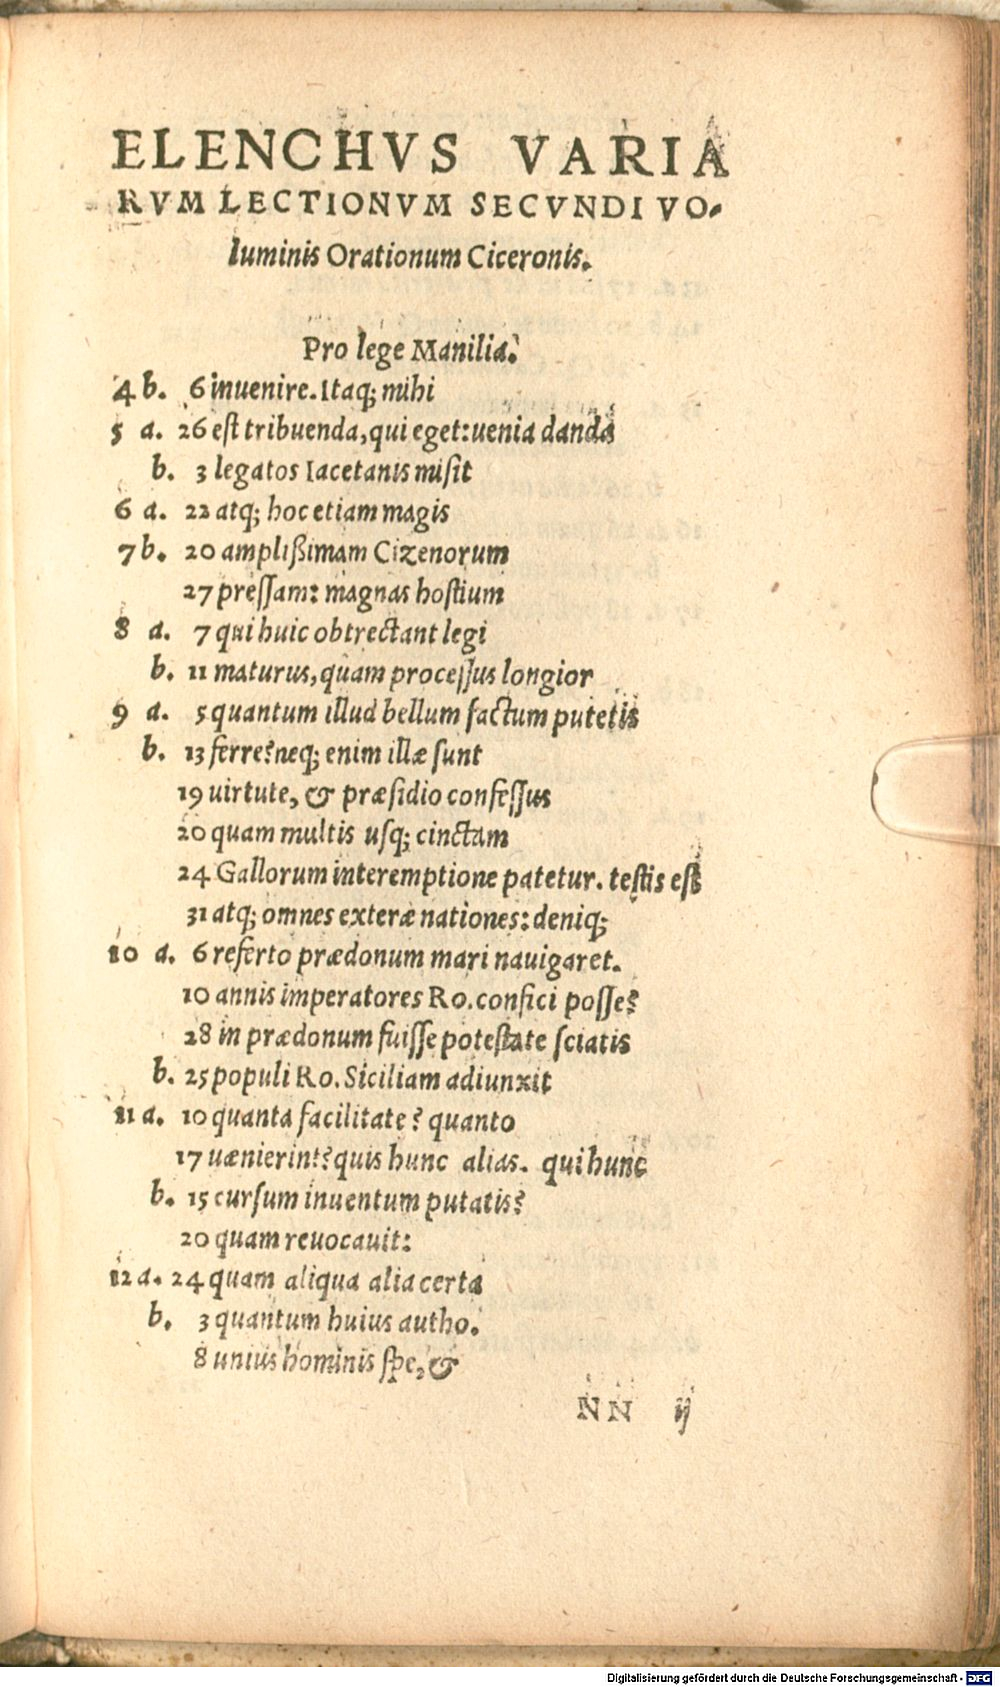 ELENCHVS VARIA
RVM LECTIONVM SECVNDI VO-
luminis Orationum Ciceronis.
Pro lege Manilia.
4 b. 6 inuenire. Itaq; mihi
5 a. 26 est tribuenda, qui eget: uenia danda
b. 3 legatos Iacetanis misit
6 a. 22 atq; hoc etiam magis
7 b. 20 amplißimam Cizenorum
27 pressam: magnas hostium
8 a. 7 qui huic obtrectant legi
b. 11 maturus, quam processus longior
9 a. 5 quantum illud bellum factum putetis
b. 13 ferre? neq; enim illæ sunt
19 uirtute, & præsidio confessus
20 quam multis usq; cinctam
24 Gallorum interemptione patetur. testis est
31 atq; omnes exteræ nationes: deniq;
10 a. 6 referto prædonum mari nauigaret.
10 annis imperatores Ro. confici posse?
28 in prædonum fuisse potestate sciatis
b. 25 populi Ro. Siciliam adiunxit
11 a. 10 quanta facilitate? quanto
17 uænierint? quis hunc alias. qui hunc
b. 15 cursum inuentum putatis?
20 quam reuocauit:
12 a. 24 quam aliqua alia certa
b. 3 quantum huius autho.
8 unius hominis spe, &
NN ij
Digitalisierung gefördert durch die Deutsche Forschungsgemeinschaft - DFG